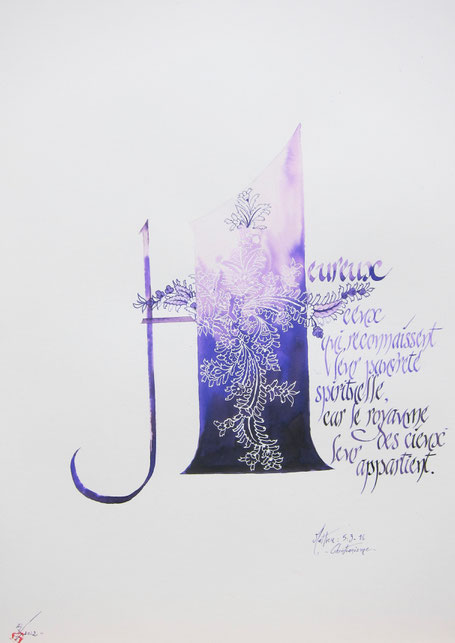 Heureux
ceux
qui reconnaissent
leur pauvreté
spirituelle,
car le royaume
des cieux
leur
appartient.